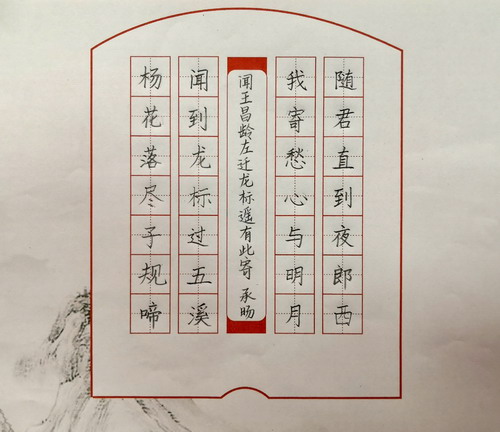 杨花落尽子规啼
闻到龙标过五溪
闻王昌龄左迁龙标遥有此寄 承旸
我寄愁心与明月
随君直到夜郎西